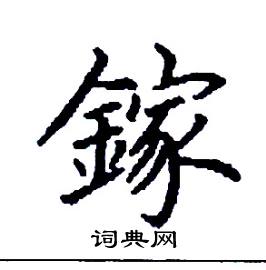 鎵
词典网